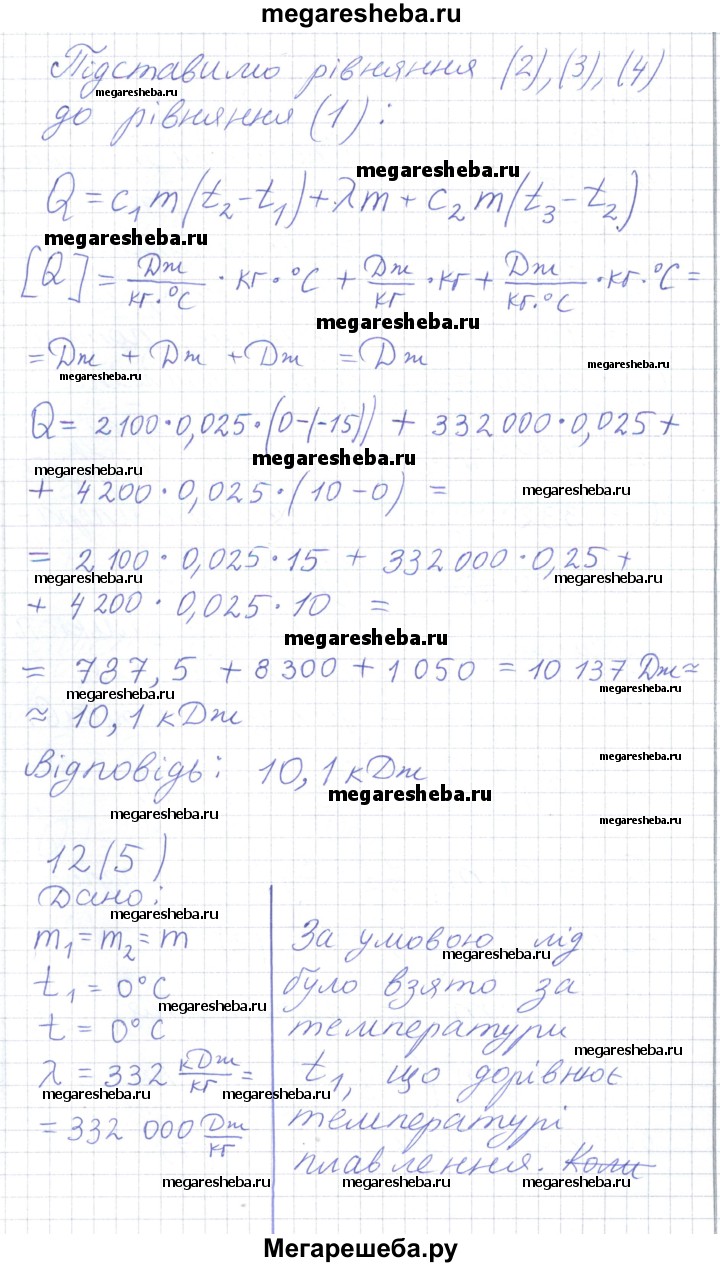 megaresheba.ru
Підставимо рівняння (2), (3), (4)
megaresheba.ru
до рівняння (1):
megaresheba.ru
Q = c₁m(t₂-t₁)+λm+c₂m(t₃-t₂)
megaresheba.ru
[Q] = Дж/кг·°C · кг·°C + Дж/кг · кг + Дж/кг·°C · кг·°C =
megaresheba.ru
= Дж + Дж + Дж = Дж
megaresheba.ru megaresheba.ru
Q = 2100·0,025·(0-(-15)) + 332000·0,025 +
megaresheba.ru megaresheba.ru
+ 4200·0,025·(10-0) =
megaresheba.ru
= 2100·0,025·15 + 332000·0,25 +
megaresheba.ru megaresheba.ru
+ 4200·0,025·10 =
megaresheba.ru
= 787,5 + 8300 + 1050 = 10137 Дж ≈
megaresheba.ru megaresheba.ru
≈ 10,1 кДж
Відповідь: 10,1 кДж
megaresheba.ru
megaresheba.ru
megaresheba.ru megaresheba.ru
12(5)
Дано:
megaresheba.ru
m₁ = m₂ = m
t₁ = 0°C
megaresheba.ru
t = 0°C
λ = 332 кДж/кг =
megaresheba.ru megaresheba.ru
= 332 000 Дж/кг
megaresheba.ru
За умовою лід
megaresheba.ru
було взято за
температури
megaresheba.ru
t₁, що дорівнює
megaresheba.ru megaresheba.ru
температурі
плавлення. Коли
megaresheba.ru megaresheba.ru
Мегарешеба.ру